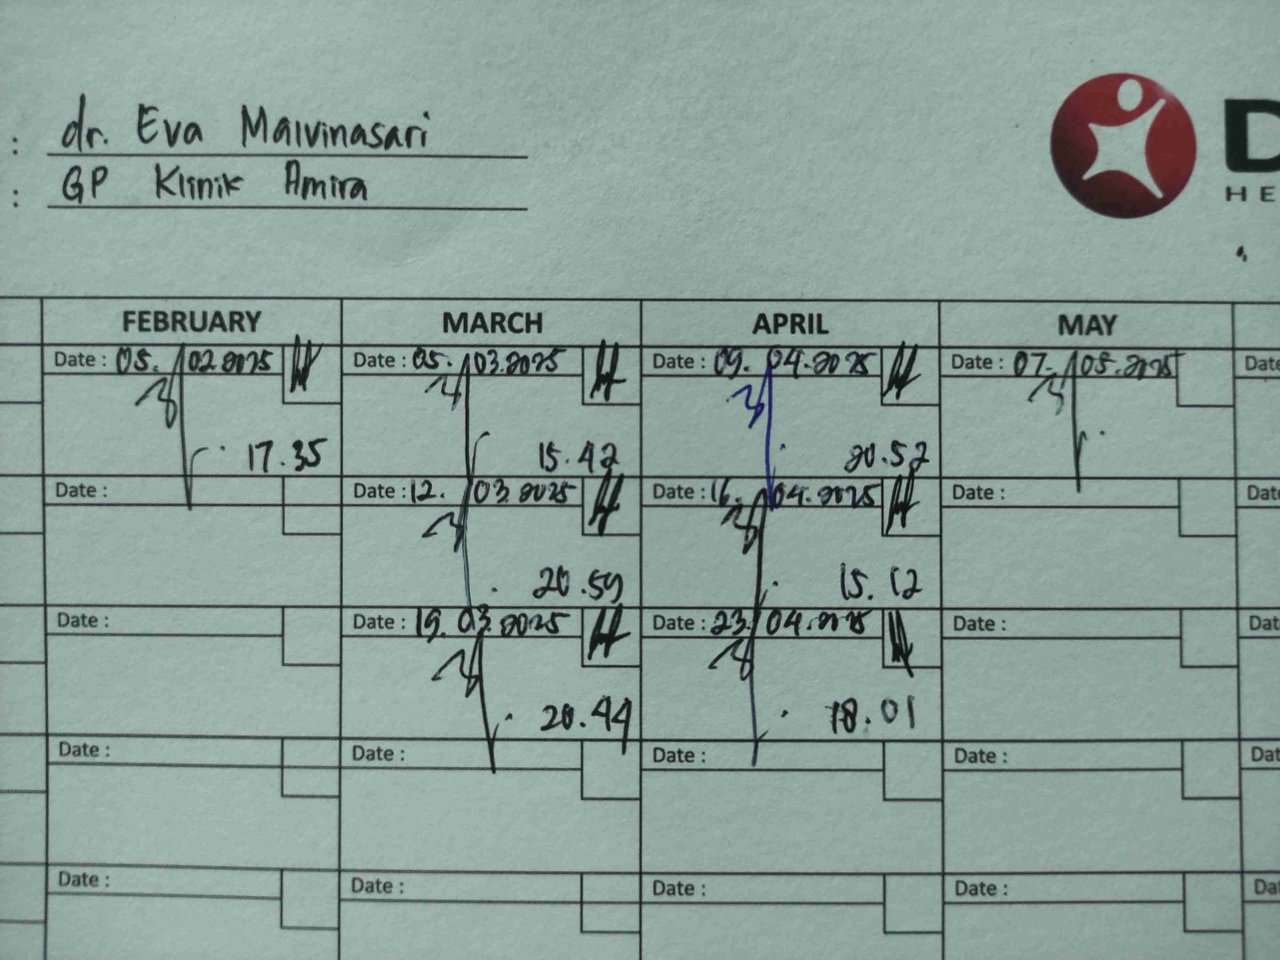 : dr. Eva Malvinasari
: GP Klinik Amira
D
HE
FEBRUARY MARCH APRIL MAY
Date : 05. 02.2025 Date : 05. 03.2025 Date : 09. 04.2025 Date : 07. 05.2025 Date
17.35 15.42 20.52
Date : Date : 12. 03 2025 Date : 16. 04.2025 Date : Date
20.59 15.12
Date : Date : 19. 03. 2025 Date : 23. 04.2025 Date : Dat
20.44 18.01
Date : Date : Date : Date : Dat
Date : Date : Date : Date : Da